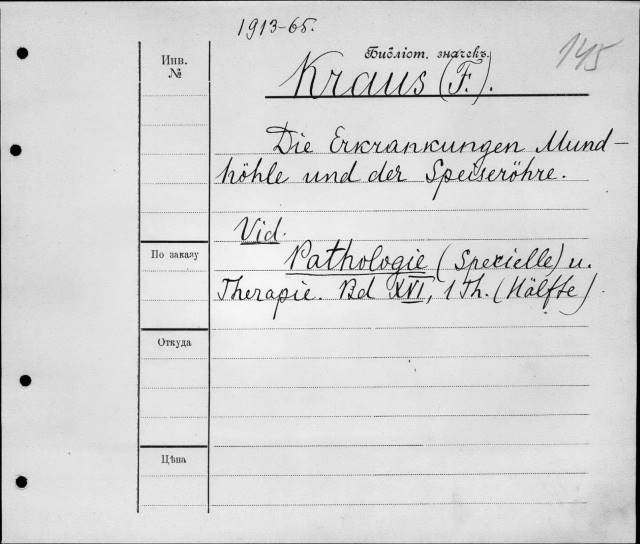 1913-65.
145
Инв.
№
Библіот. значекъ
Kraus (F.).
Die Erkrankungen Mund-
höhle und der Speiseröhre.
Vid.
По заказу
Pathologie (Spezielle) u.
Therapie. Bd XVI, 1 Th. (Hälfte).
Откуда
Цѣна